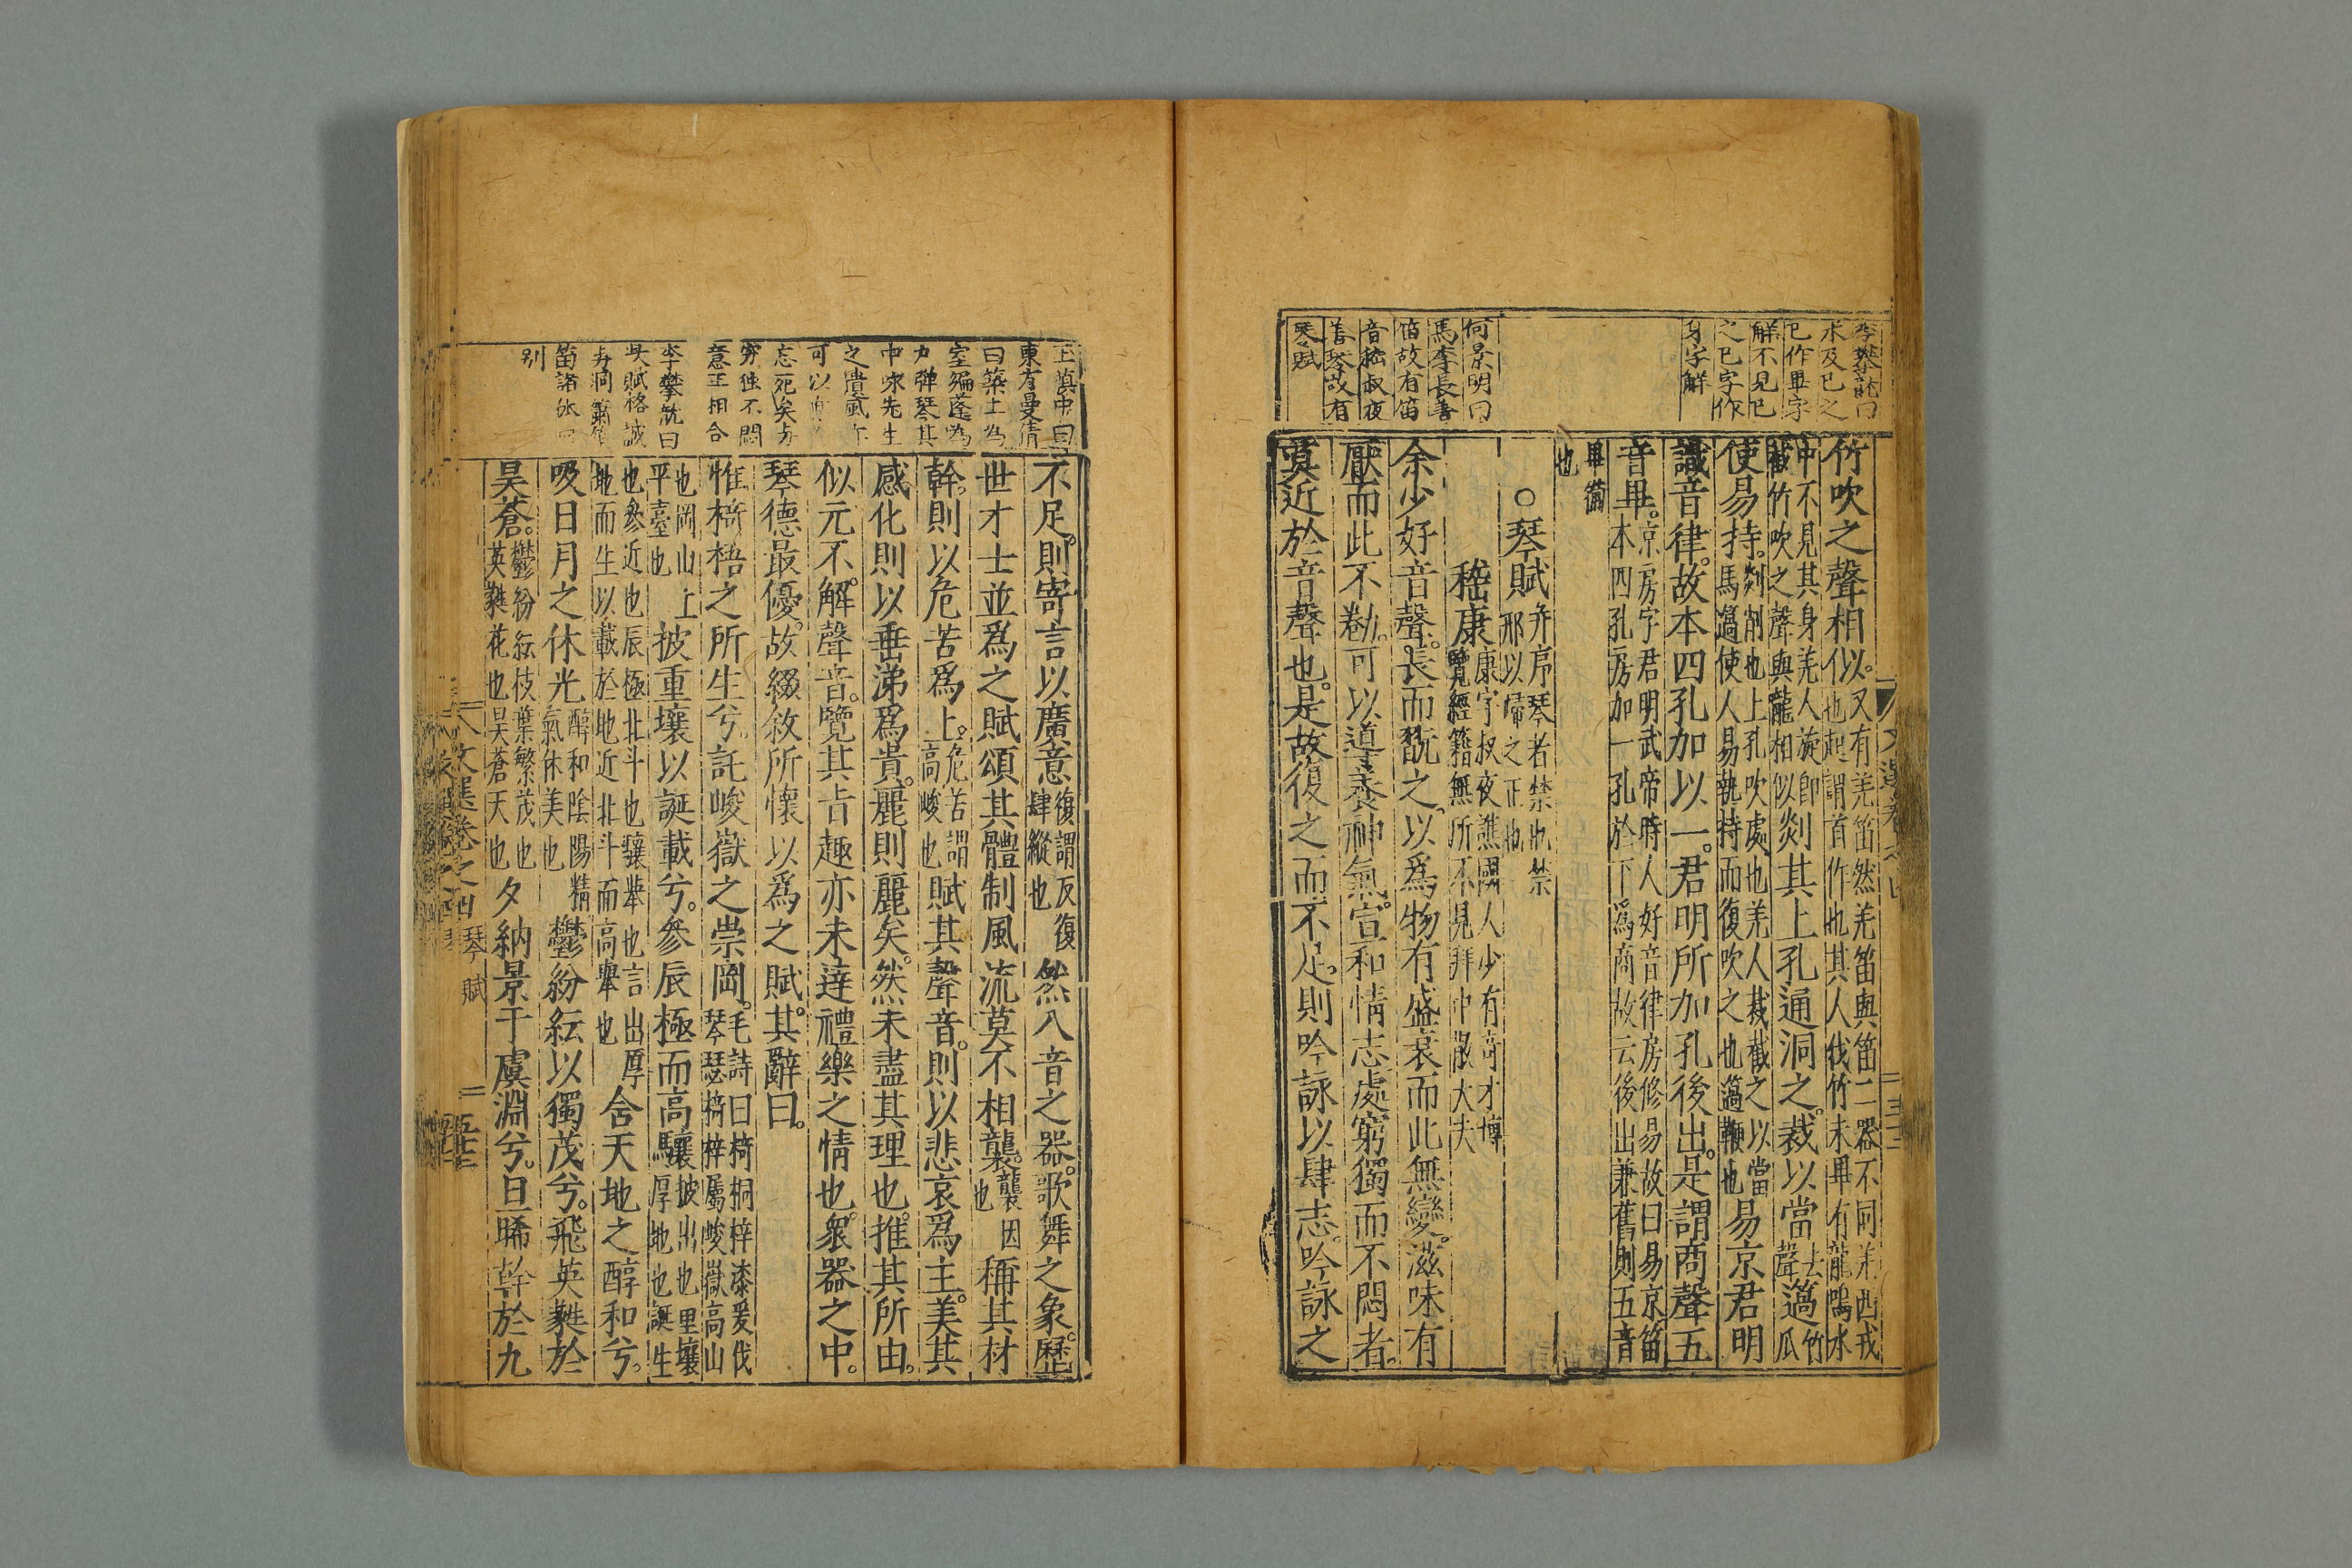 李攀龍曰
求及已之
已作畢字
解不見已
之已字作
身字解
何景明曰
馬季長善
笛故有笛
音嵇叔夜
善琴故有
琴賦
竹吹之聲相似。又有羌笛然羌笛與笛二器不同羌西戎
也起謂首作也其人伐竹未畢有龍鳴水
中不見其身羌人旋即
截竹吹之聲與龍相似剡其上孔通洞之。裁以當去聲簻竹瓜
使易持。剡削也上孔吹處也羌人裁截之以當
馬簻使人易執持而復吹之也簻鞭也易京君明
識音律。故本四孔加以一。君明所加孔後出。是謂商聲五
音畢。京房字君明武帝時人好音律房修易故曰易京笛
本四孔房加一孔於下爲商故云後出兼舊則五音
畢備
也
○琴賦并序琴者禁也禁
邪以歸之正也
嵇康康字叔夜譙國人少有奇才博
覽經籍無所不見拜中散大夫
余少好音聲。長而翫之。以爲物有盛衰而此無變。滋味有
厭而此不勌。可以導養神氣。宣和情志處窮獨而不悶者。
莫近於音聲也。是故復之而不足。則吟詠以肆志。吟詠之
文選卷之四
不足。則寄言以廣意復謂反復
肆縱也然八音之器。歌舞之象。歷
世才士並爲之賦頌其體制風流莫不相襲。襲因
也稱其材
幹。則以危苦爲上。危苦謂
高峻也賦其聲音。則以悲哀爲主。美其
感化則以垂涕爲貴。麗則麗矣。然未盡其理也。推其所由。
似元不解。聲音。覽其旨趣亦未達禮樂之情也。衆器之中。
琴德最優。故綴敘所懷以爲之賦。其辭曰。
惟椅梧之所生兮。託峻嶽之崇岡。毛詩曰椅桐梓漆爰伐
琴瑟椅梓屬峻嶽高山
也岡山上
平臺也披重壤以誕載兮。參辰極而高驤披出也里壤
厚地也誕生
也參近也辰極北斗也驤舉也言出厚
地而生以載於地近北斗而高舉也含天地之醇和兮。
吸日月之休光醇和陰陽精
氣休美也鬱紛紜以獨茂兮。飛英蕤於
昊蒼。鬱紛紜枝葉繁茂也
英蕤花也昊蒼天也夕納景于虞淵兮。旦晞幹於九
王慎中曰
東方曼倩
曰築土為
室編蓬為
戶彈琴其
中咏先生
之遺風亦
可以
忘死矣與
窮獨不悶
意正相合
李攀龍曰
此賦格誠
與洞簫
笛諸
別
文選卷之四 琴賦